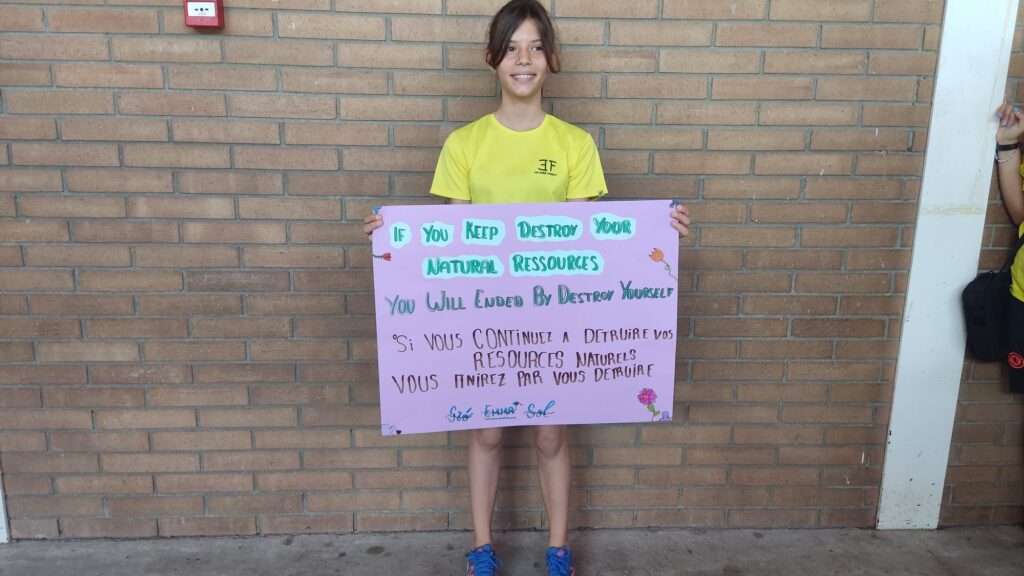 EF
IF YOU KEEP DESTROY YOUR
NATURAL RESSOURCES
YOU WILL ENDED BY DESTROY YOURSELF
"SI VOUS CONTINUEZ A DETRUIRE VOS
RESOURCES NATURELS
VOUS FINIREZ PAR VOUS DETRUIRE
EMMA Sol